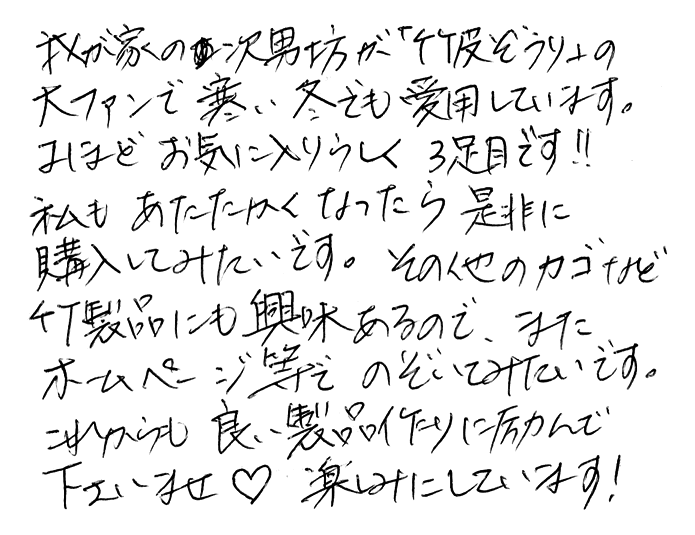 我が家の次男坊が「竹皮ぞうり」の
大ファンで寒い冬でも愛用しています。
よほどお気に入りらしく3足目です!!
私もあたたかくなったら是非に
購入してみたいです。その他のカゴなど
竹製品にも興味あるので、また
ホームページ等で のぞいてみたいです。
これからも良い製品作りに励んで
下さいませ♡ 楽しみにしています!